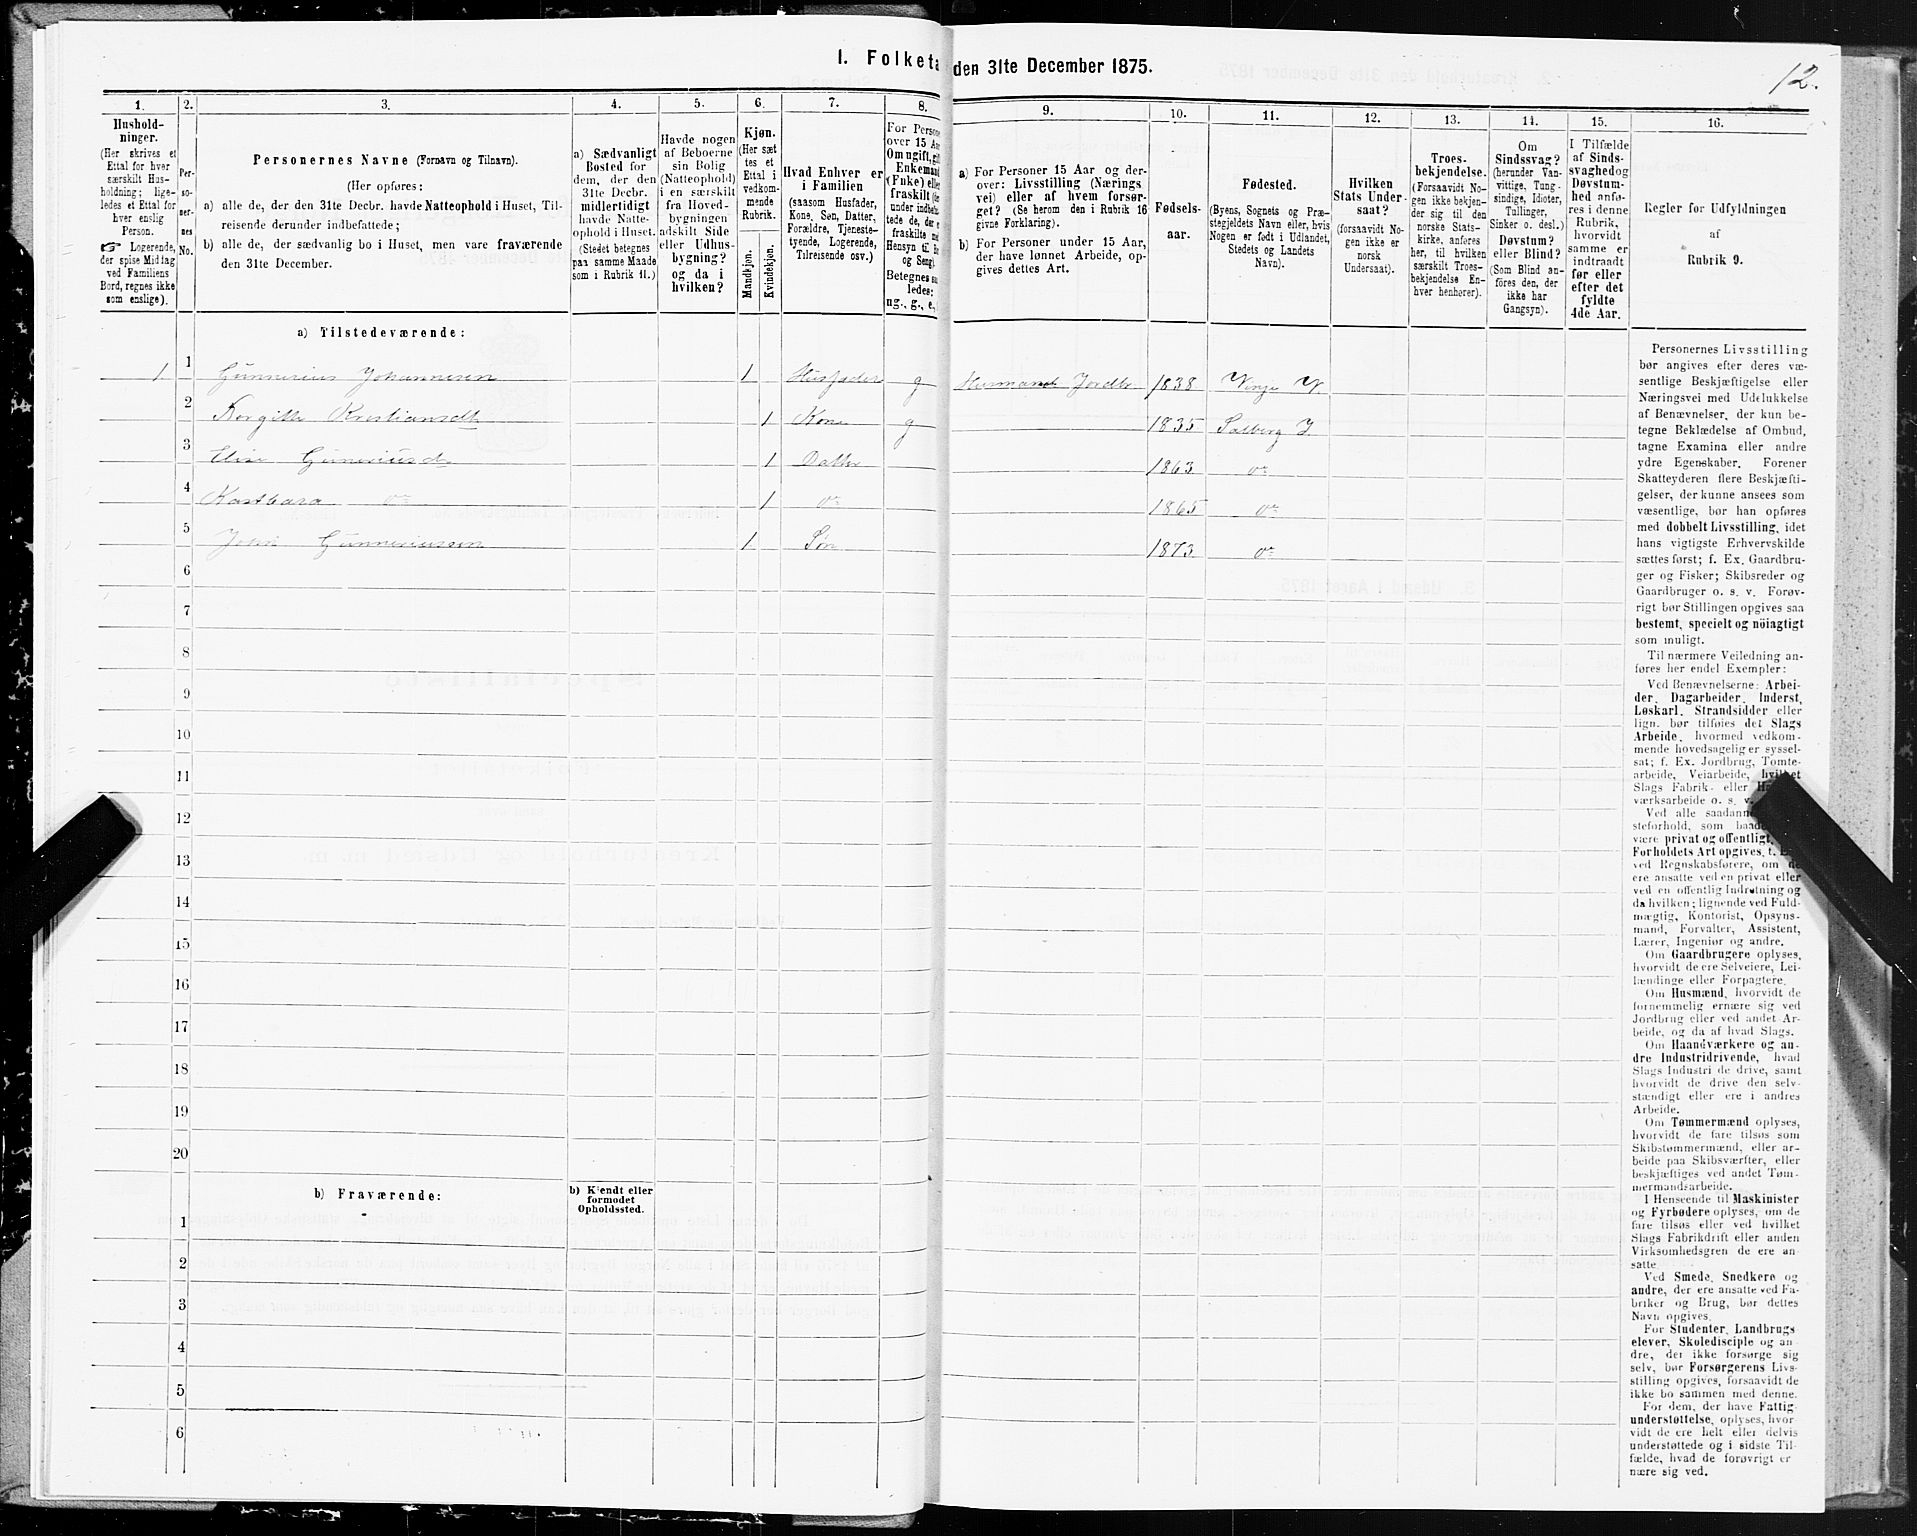 I. Folketa den 31te December 1875.
12.
1.
Hushold-
ninger.
(Her skrives et
Ettal for hver
særskilt Hus-
holdning; lige-
ledes et Ettal for
hver enslig
Person.
☞ Logerende,
der spise Middag
ved Familiens
Bord, regnes ikke
som enslige).
2.
Per-
so-
ner-
nes
No.
3.
Personernes Navne (Fornavn og Tilnavn).
(Her opføres:
a) alle de, der den 31te Decbr. havde Natteophold i Huset, Til-
reisende derunder indbefattede;
b) alle de, der sædvanlig bo i Huset, men vare fraværende
den 31te December.
4.
a) Sædvanligt
Bosted for
dem, der den
31te Decbr.
midlertidigt
havde Natte-
ophold i Huset.
(Stedet betegnes
paa samme Maade
som i Rubrik 11.)
5.
Havde nogen
af Beboerne
sin Bolig
(Natteophold)
i en særskilt
fra Hoved-
bygningen
adskilt Side
eller Udhus-
bygning?
og da i
hvilken?
6.
Kjøn.
(Her sæt
tes et
Ettal i
vedkom-
mende
Rubrik.
Mandkjøn.
Kvindekjøn.
7.
Hvad Enhver er
i Familien
(saasom Husfader,
Kone, Søn, Datter,
Forældre, Tjeneste-
tyende, Logerende,
Tilreisende osv.)
8.
For Persone
over 15 Aa
Om ugift, gif
Enkemand
(Enke) elle
fraskilt (de
under indbefa
tede de, der e
fraskilte me
Hensyn til Bo
og Seng).
Betegnes saa
ledes:
ug., g., e.,
9.
a) For Personer 15 Aar og der-
over: Livsstilling (Nærings
vei) eller af hvem forsør-
get? (Se herom den i Rubrik 16
givne Forklaring).
b) For Personer under 15 Aar,
der have lønnet Arbeide, op-
gives dettes Art.
10.
Fødsels-
aar.
11.
Fødested.
(Byens, Sognets og Præ-
stegjeldets Navn eller, hvis
Nogen er født i Udlandet,
Stedets og Landets
Navn).
12.
Hvilken
Stats Under-
saat?
(forsaavidt No-
gen ikke er
norsk
Undersaat).
13.
Troes-
bekjendelse.
(Forsaavidt No-
gen ikke bekjen-
der sig til den
norske Stats-
kirke, anføres
her, til hvilken
særskilt Troes-
bekjendelse En-
hver henhører).
14.
Om
Sindssvag?
(herunder Van-
vittige, Tung-
sindige, Idioter,
Tullinger,
Sinker o. desl.)
Døvstum?
eller Blind?
(Som Blind an-
føres den, der
ikke har
Gangsyn).
15.
I Tilfælde
af Sinds-
svaghed og
Døvstum-
hed anfø-
res i denne
Rubrik,
hvorvidt
samme er
indtraadt
før eller
efter det
fyldte
4de Aar.
16.
Regler for Udfyldningen
af
Rubrik 9.
a) Tilstedeværende:
1. 1 Gunnerius Johannesen 1 Husfader g Husmand Jordbr 1838 Vinje V.
2 Kristiansdt 1 Kone g 1835 Salberg I.
3 Elise Guneriusd 1 Datter 1863 do
4 do 1 do 1865 do
5 Gunneriussen 1. Søn 1873 do
6
7
8
9
10
11
12
13
14
15
16
17
18
19
20
b) Fraværende:
b) Kjendt eller
formodet
Opholdssted.
1
2
3
4
5
6
Personernes Livsstilling
bør angives efter deres væ-
sentlige Beskjæftigelse eller
Næringsvei med Udelukkelse
af Benævnelser, der kun be-
tegne Beklædelse af Ombud,
tagne Examina eller andre
ydre Egenskaber. Forener
Skatteyderen flere Beskjæfti-
gelser, der kunne ansees som
væsentlige, bør han opføres
med dobbelt Livsstilling, idet
hans vigtigste Erhvervskilde
sættes først; f. Ex. Gaardbru-
ger og Fisker; Skibsreder og
Gaardbruger o. s. v. Forøv-
rigt bør Stillingen opgives saa
bestemt, specielt og nöiagtigt
som muligt.
Til nærmere Veiledning an-
føres her endel Exempler:
Ved Benævnelserne: Arbei-
der, Dagarbeider, Inderst,
Løskarl, Strandsidder eller
lign. bør tilføies det Slags
Arbeide, hvormed vedkom-
mende hovedsagelig er syssel-
sat; f. Ex. Jordbrug, Tomte-
arbeide, Veiarbeide, hvilket
Slags Fabrik- eller
værksarbeide o. s. v.
Ved alle saadann
steforhold, som baade
være privat og offentligt,
Forholdets Art opgives, t. E
ved Regnskabsførere, om de
ere ansatte ved en privat eller
ved en offentlig Indretning og
da hvilken; lignende ved Fuld-
mægtig, Kontorist, Opsyns-
mand, Forvalter, Assistent,
Lærer, Ingeniør og andre.
Om Gaardbrugere oplyses,
hvorvidt de ere Selveiere, Lei-
lændinge eller Forpagtere.
Om Husmænd, hvorvidt de
fornemmelig ernære sig ved
Jordbrug eller ved andet Ar-
beide, og da af hvad Slags.
Om Haandværkere og an-
dre Industridrivende, hvad
Slags Industri de drive, samt
hvorvidt de drive den selv-
stændigt eller ere i andres
Arbeide.
Om Tømmermænd oplyses,
hvorvidt de fare tilsøs som
Skibstømmermænd, eller ar-
beide paa Skibsværfter, eller
beskjæftiges ved andet Tøm-
mermandsarbeide.
I Henseende til Maskinister
og Fyrbødere oplyses, om de
fare tilsøs eller ved hvilket
Slags Fabrikdrift eller anden
Virksomhedsgren de ere an-
satte.
Ved Smede, Snedkere og
andre, der ere ansatte ved Fa-
briker og Brug, bør dettes
Navn opgives.
For Studenter, Landbrugs
elever, Skoledisciple og an-
dre, der ikke forsørge sig
selv, bør Forsørgerens Livs-
stilling opgives, forsaavidt de
ikke bo sammen med denne.
For dem, der have Fattig-
understøttelse, oplyses, hvor-
vidt de ere helt eller delvis
understøttede og i sidste Til-
fælde, hvad de forøvrigt er
nære sig ved.